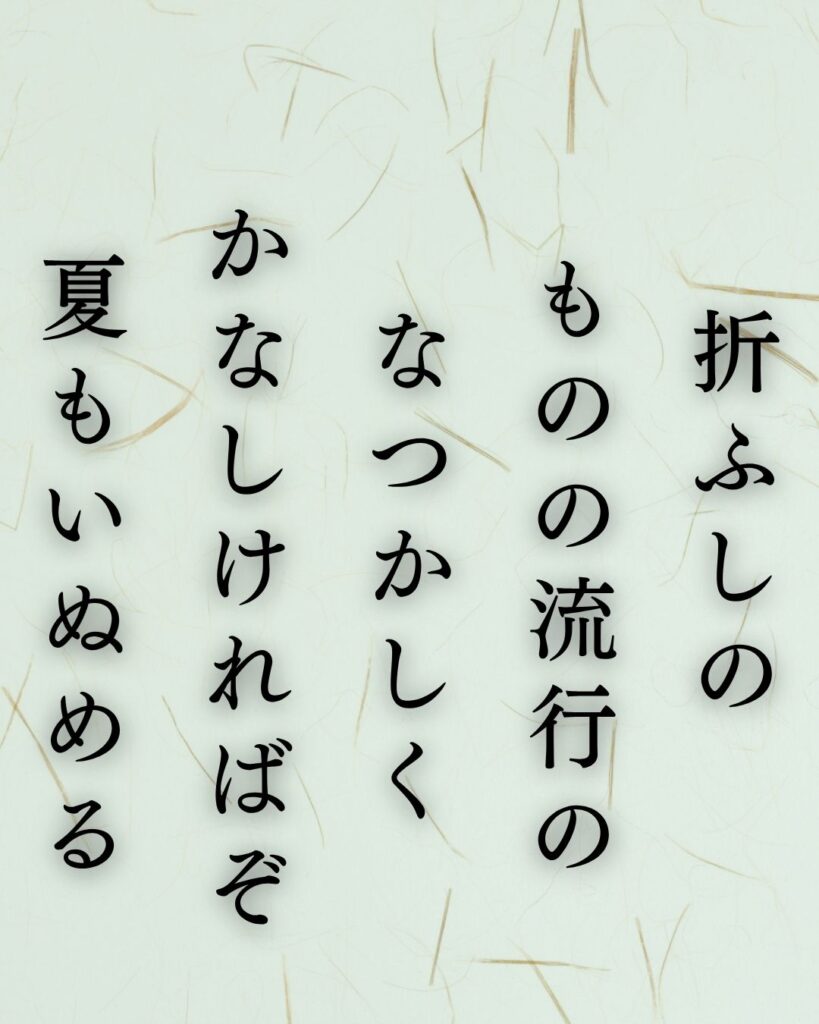 折ふしの
ものの流行の
なつかしく
かなしければぞ
夏もいぬめる